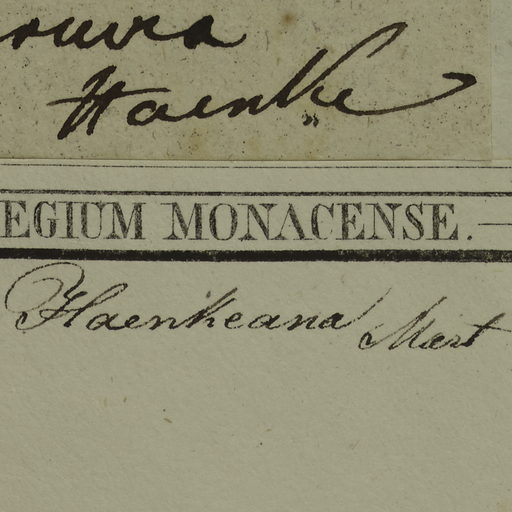 Haenke
EGIUM MONACENSE.
Haenkeana Mart